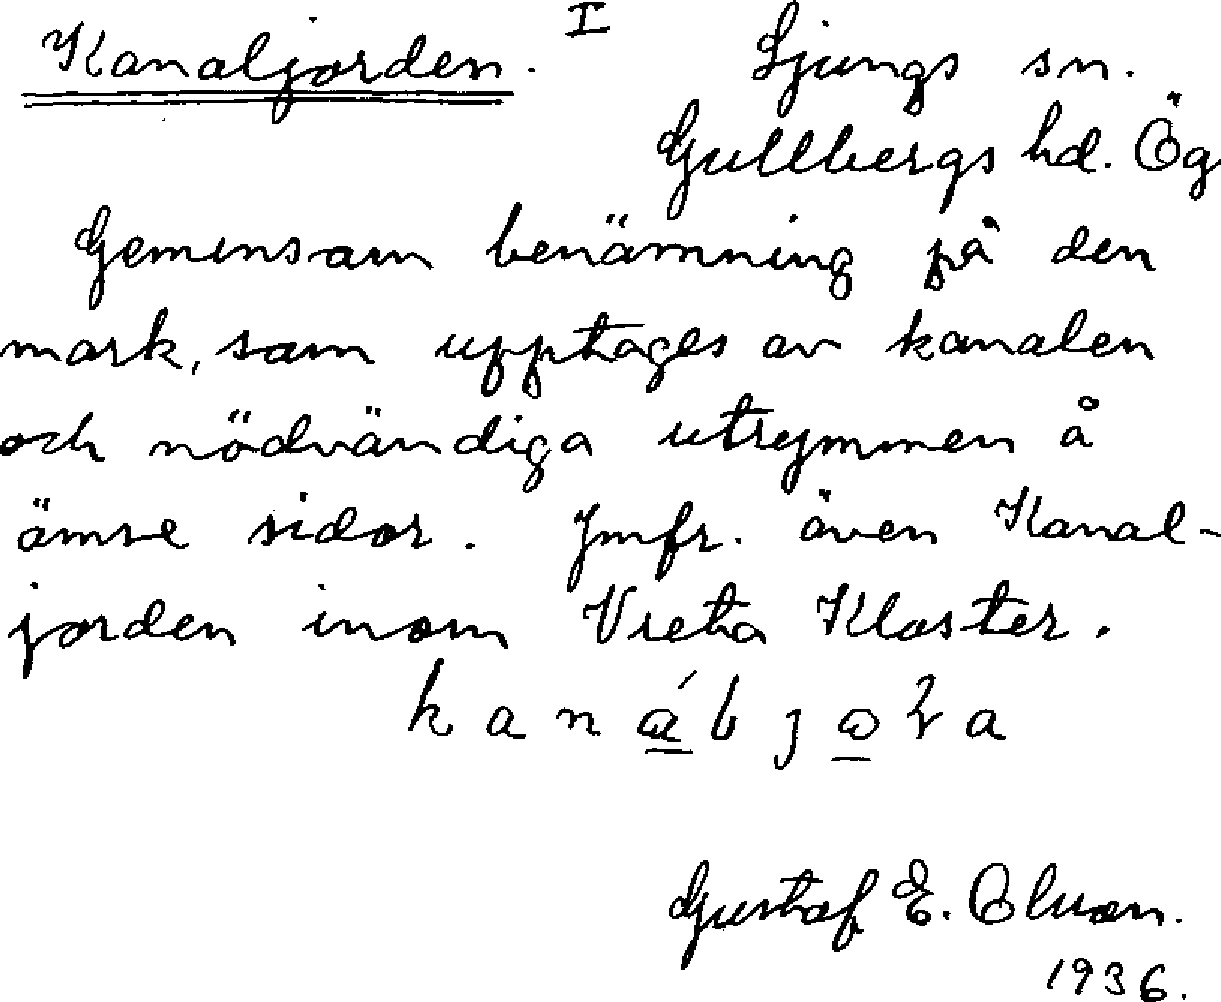 Kanaljorden. I Ljungs sn.
Gullbergs hd. Ög
Gemensam benämning på den
mark, som upptages av kanalen
och nödvändiga utrymmen å
ömse sidor. Jmfr. även Kanal-
jorden inom Vreta Kloster.
Gustaf E.
1936.